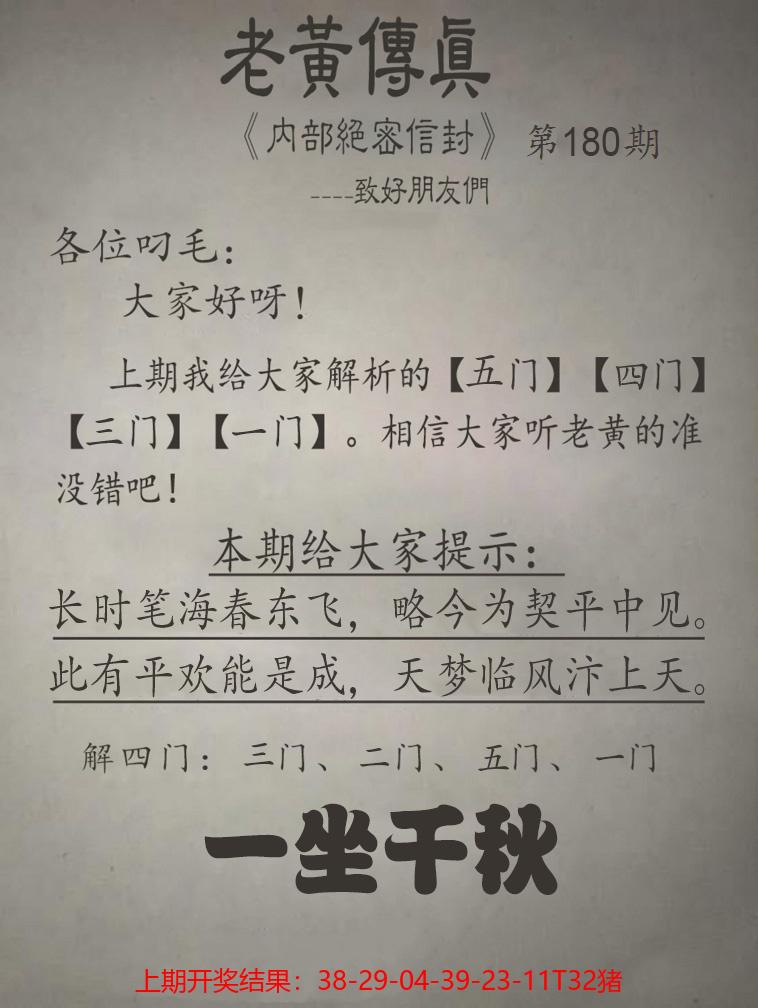 老黃傳眞
《内部絕密信封》 第180期
----致好朋友們
各位叼毛：
大家好呀！
上期我给大家解析的【五门】【四门】
【三门】【一门】。相信大家听老黄的准
没错吧！
本期给大家提示：
长时笔海春东飞，略今为契平中见。
此有平欢能是成，天梦临风汴上天。
解四门：三门、二门、五门、一门
一坐千秋
上期开奖结果：38-29-04-39-23-11T32猪